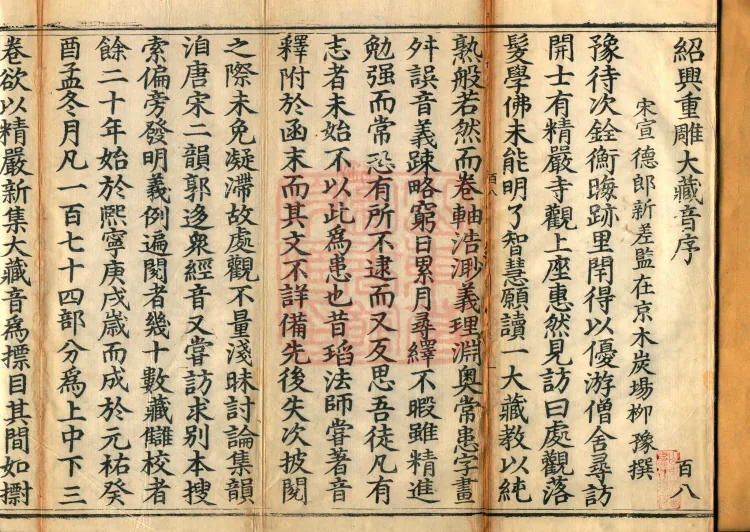 紹興重雕大藏音序
百八
宋宣德郎新差監在京木炭場柳豫撰
豫待次銓衡晦跡里閈得以優游僧舍尋訪
開士有精嚴寺觀上座惠然見訪曰處觀落
髮學佛未能明了智慧願讀一大藏教以純
熟般若然而卷軸浩渺義理淵奧常患字畫
舛誤音義踈略窮日累月尋繹不暇雖精進
百八
勉强而常恐有所不逮而又反思吾徒凡有
志者未始不以此為患也昔瑫法師嘗著音
釋附於函末而其文不詳備先後失次披閱
之際未免凝滯故處觀不量淺昧討論集韻
洎唐宋二韻郭迻衆經音又嘗訪求別本搜
索偏旁發明義例遍閱者幾十數藏讎校者
餘二十年始於熈寧庚戌歲而成於元祐癸
酉孟冬月凡一百七十四部分為上中下三
卷欲以精嚴新集大藏音為摽目其間如㨽